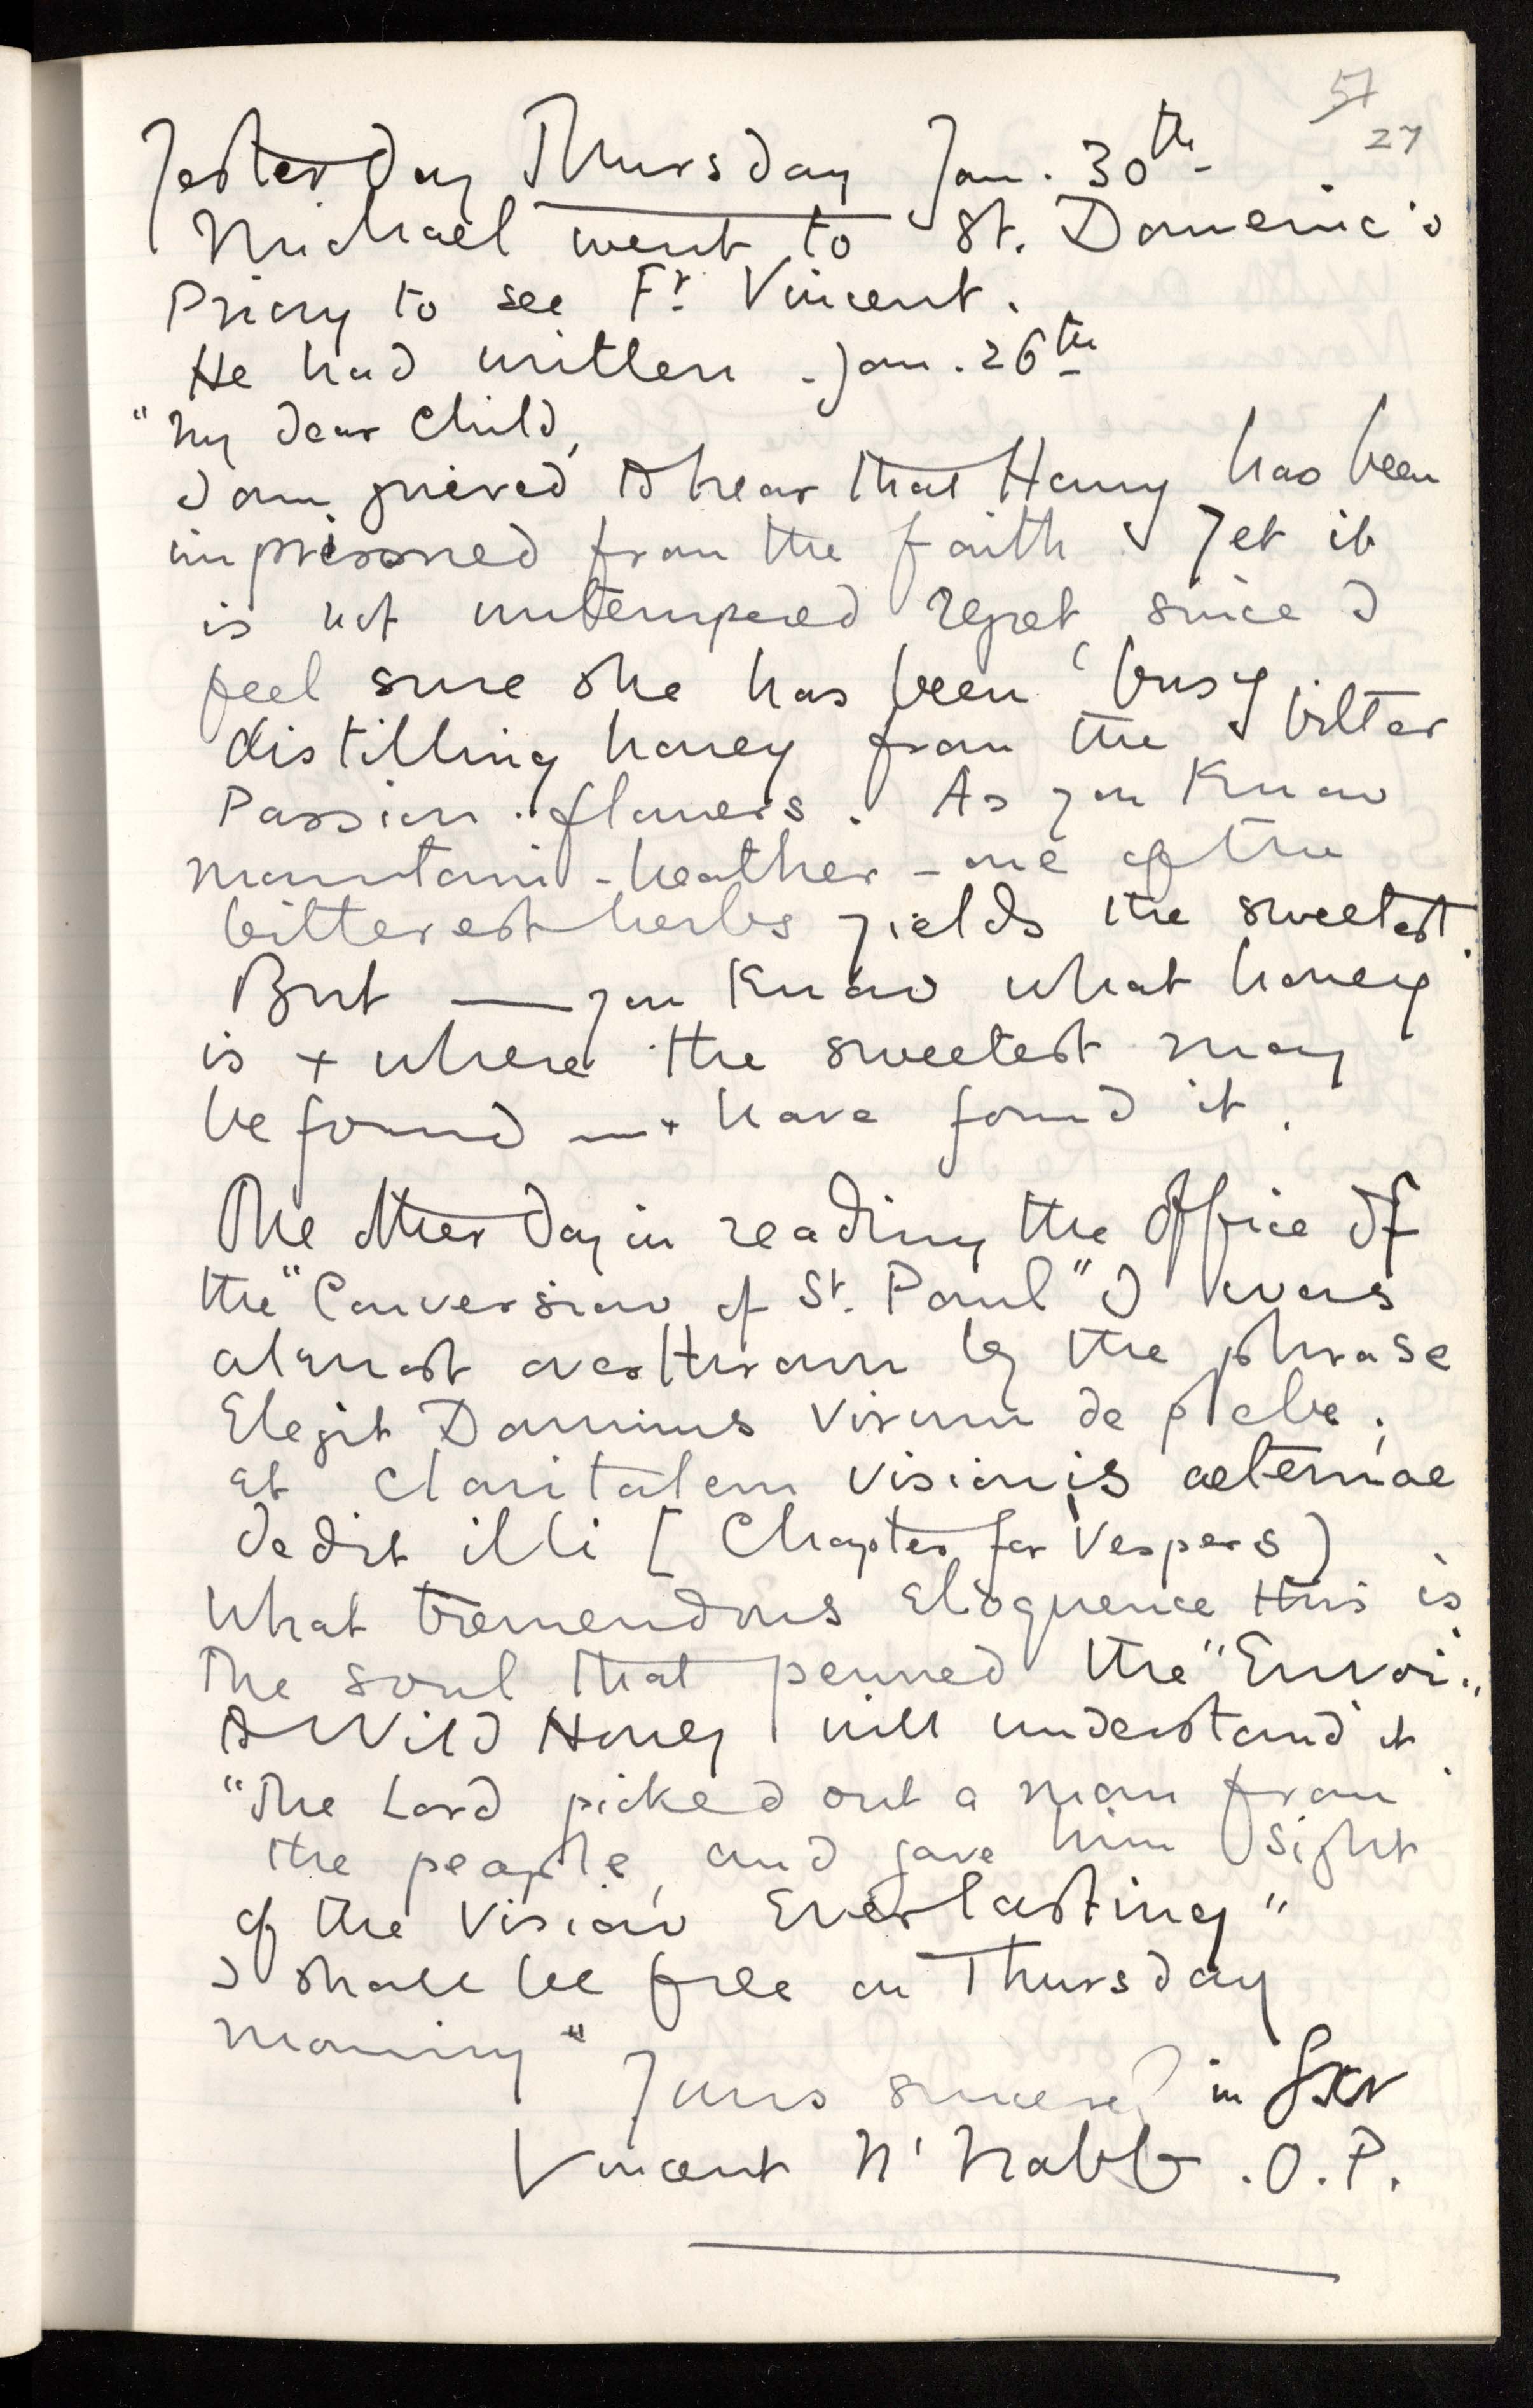 57
27
Yesterday Thursday Jan. 30th
Michael went to St. Domenic's
Priory to see Fr Vincent.
He had written . Jan. 26th
"My dear Child,
I am grieved to hear that Henry has been
imprisoned from the faith. Yet it
is not untempered regret, since I
feel sure she has been busy
distilling honey from the bitter
Passion-flowers. As you know
mountain-heather - one of the
bitterest herbs yields the sweetest.
But — you know what honey
is + where the sweetest may
be found — + have found it.
The other day in reading the Office of
the "Conversion of St. Paul" I was
almost overthrown by the phrase
Elegit Dominus virum de plebe;
et claritatem visionis aeternae
dedit illi [Chapter for Vespers)
What tremendous eloquence this is
The soul that penned the "Envoi"
to Wild Honey will understand it.
"The Lord picked out a man from
the people, and gave him sight
of the Vision Everlasting"
I shall be free on Thursday
morning"
Yours sincerely in
Vincent M'Nabb. O.P.